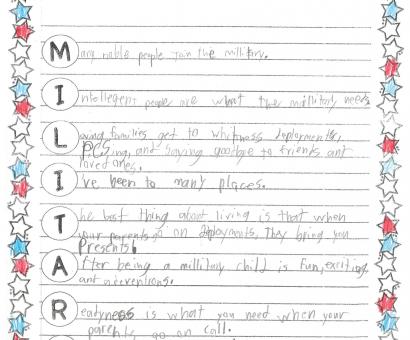 Many noble people join the millitary.
Intellegent people are what the millitary needs
Loving families get to whitness deployments,
PCSing, and saying goodbye to friends ant
loved ones.
I've been to many places.
The bast thing about living is that when
your parents go on deployments, they bring you
Presents!
After being a millitary child is fun, exciting,
ant
Readyness is what you need when your
parents go on call.